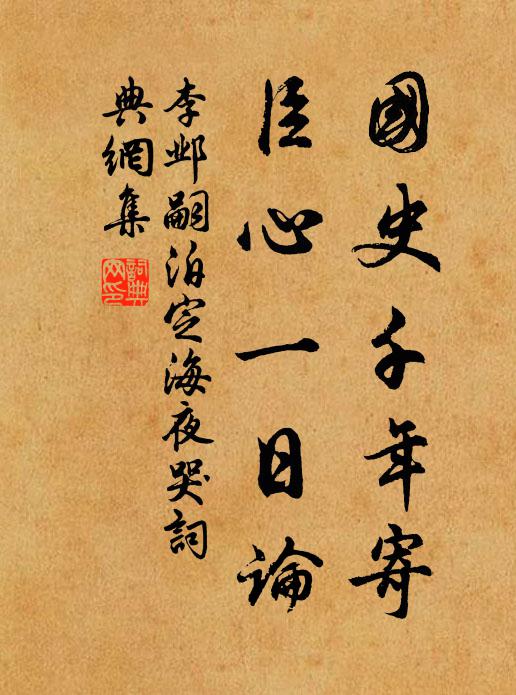 國史千年寄
臣心一日論
李邺嗣泊定海夜哭詞
典網集
詞典
网印